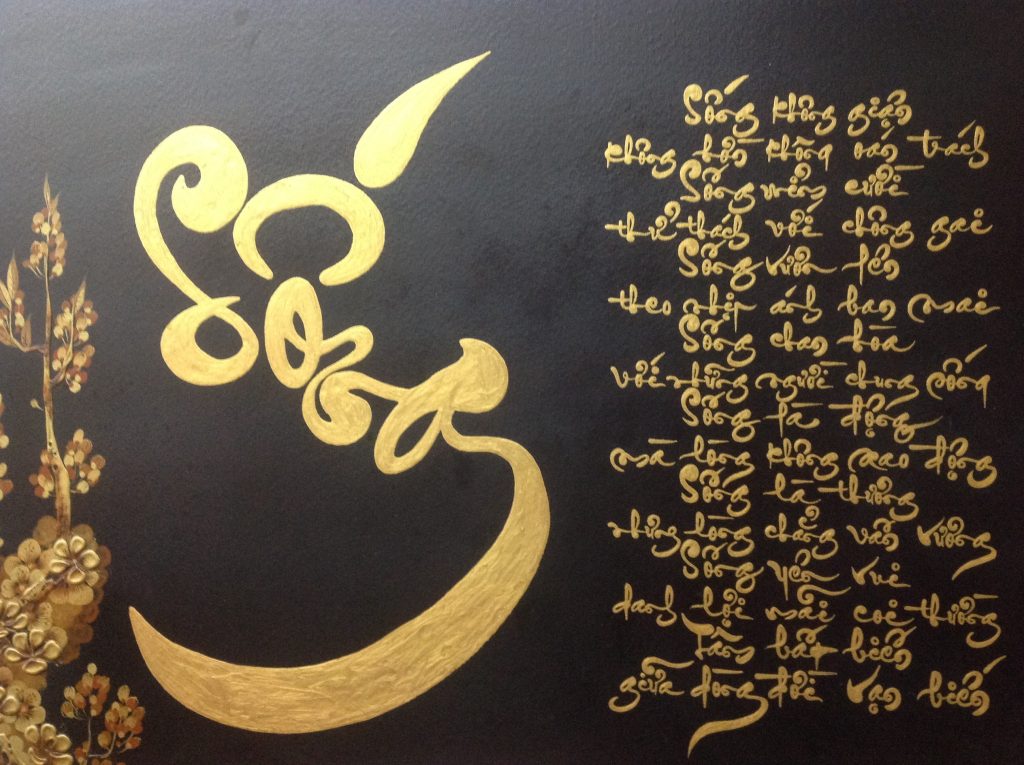 Sống
Sống không giận
không hờn không oán trách
Sống mỉm cười
thử thách với chông gai
Sống vươn lên
theo nhịp ánh ban mai
Sống chan hòa
với những người chung sống
Sống là động
mà lòng không xao động
Sống là thương
nhưng lòng chẳng vấn vương
Sống yên vui
danh lợi mãi coi thường
Tâm bất biến
giữa dòng đời vạn biến